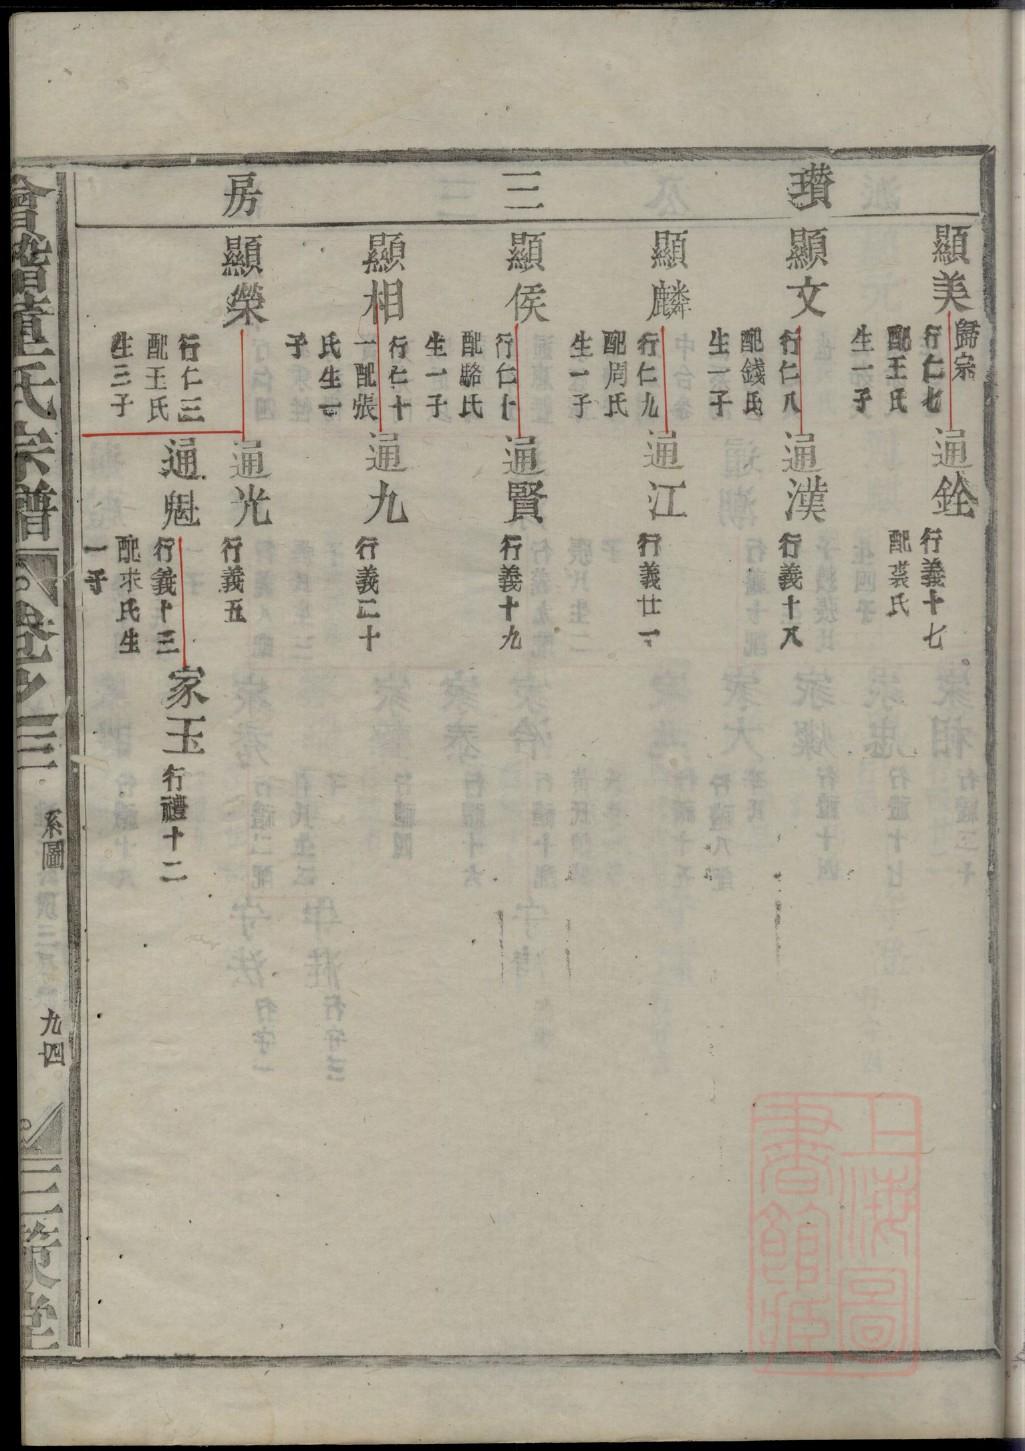 瓚三房
顯美
歸宗
行仁七
配王氏
生一子
通銓
行義十七
配裘氏
顯文
行仁八
配錢氏
生一子
通漢
行義十八
顯麟
行仁九
配周氏
生一子
通江
行義廿一
顯侯
行仁十
配駱氏
生一子
通賢
行義十九
顯相
行仁十
一配張
氏生一
子
通九
行義二十
顯榮
行仁三
配王氏
生三子
通光
行義五
通魁
行義十三
配求氏生
一子
家玉
行禮十二
會稽董氏宗譜
卷之三
系圖
九四
三策堂
上海圖
書館藏